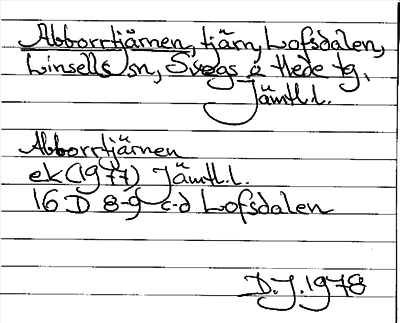 Abborrtjärnen, tjärn, Lofsdalen,
Linsells sn, Svegs o Hede tg,
Jämtl.l.
Abborrtjärnen
ek (1977) Jämtl.l.
16 D 8-9 c-d Lofsdalen
D.J. 1978